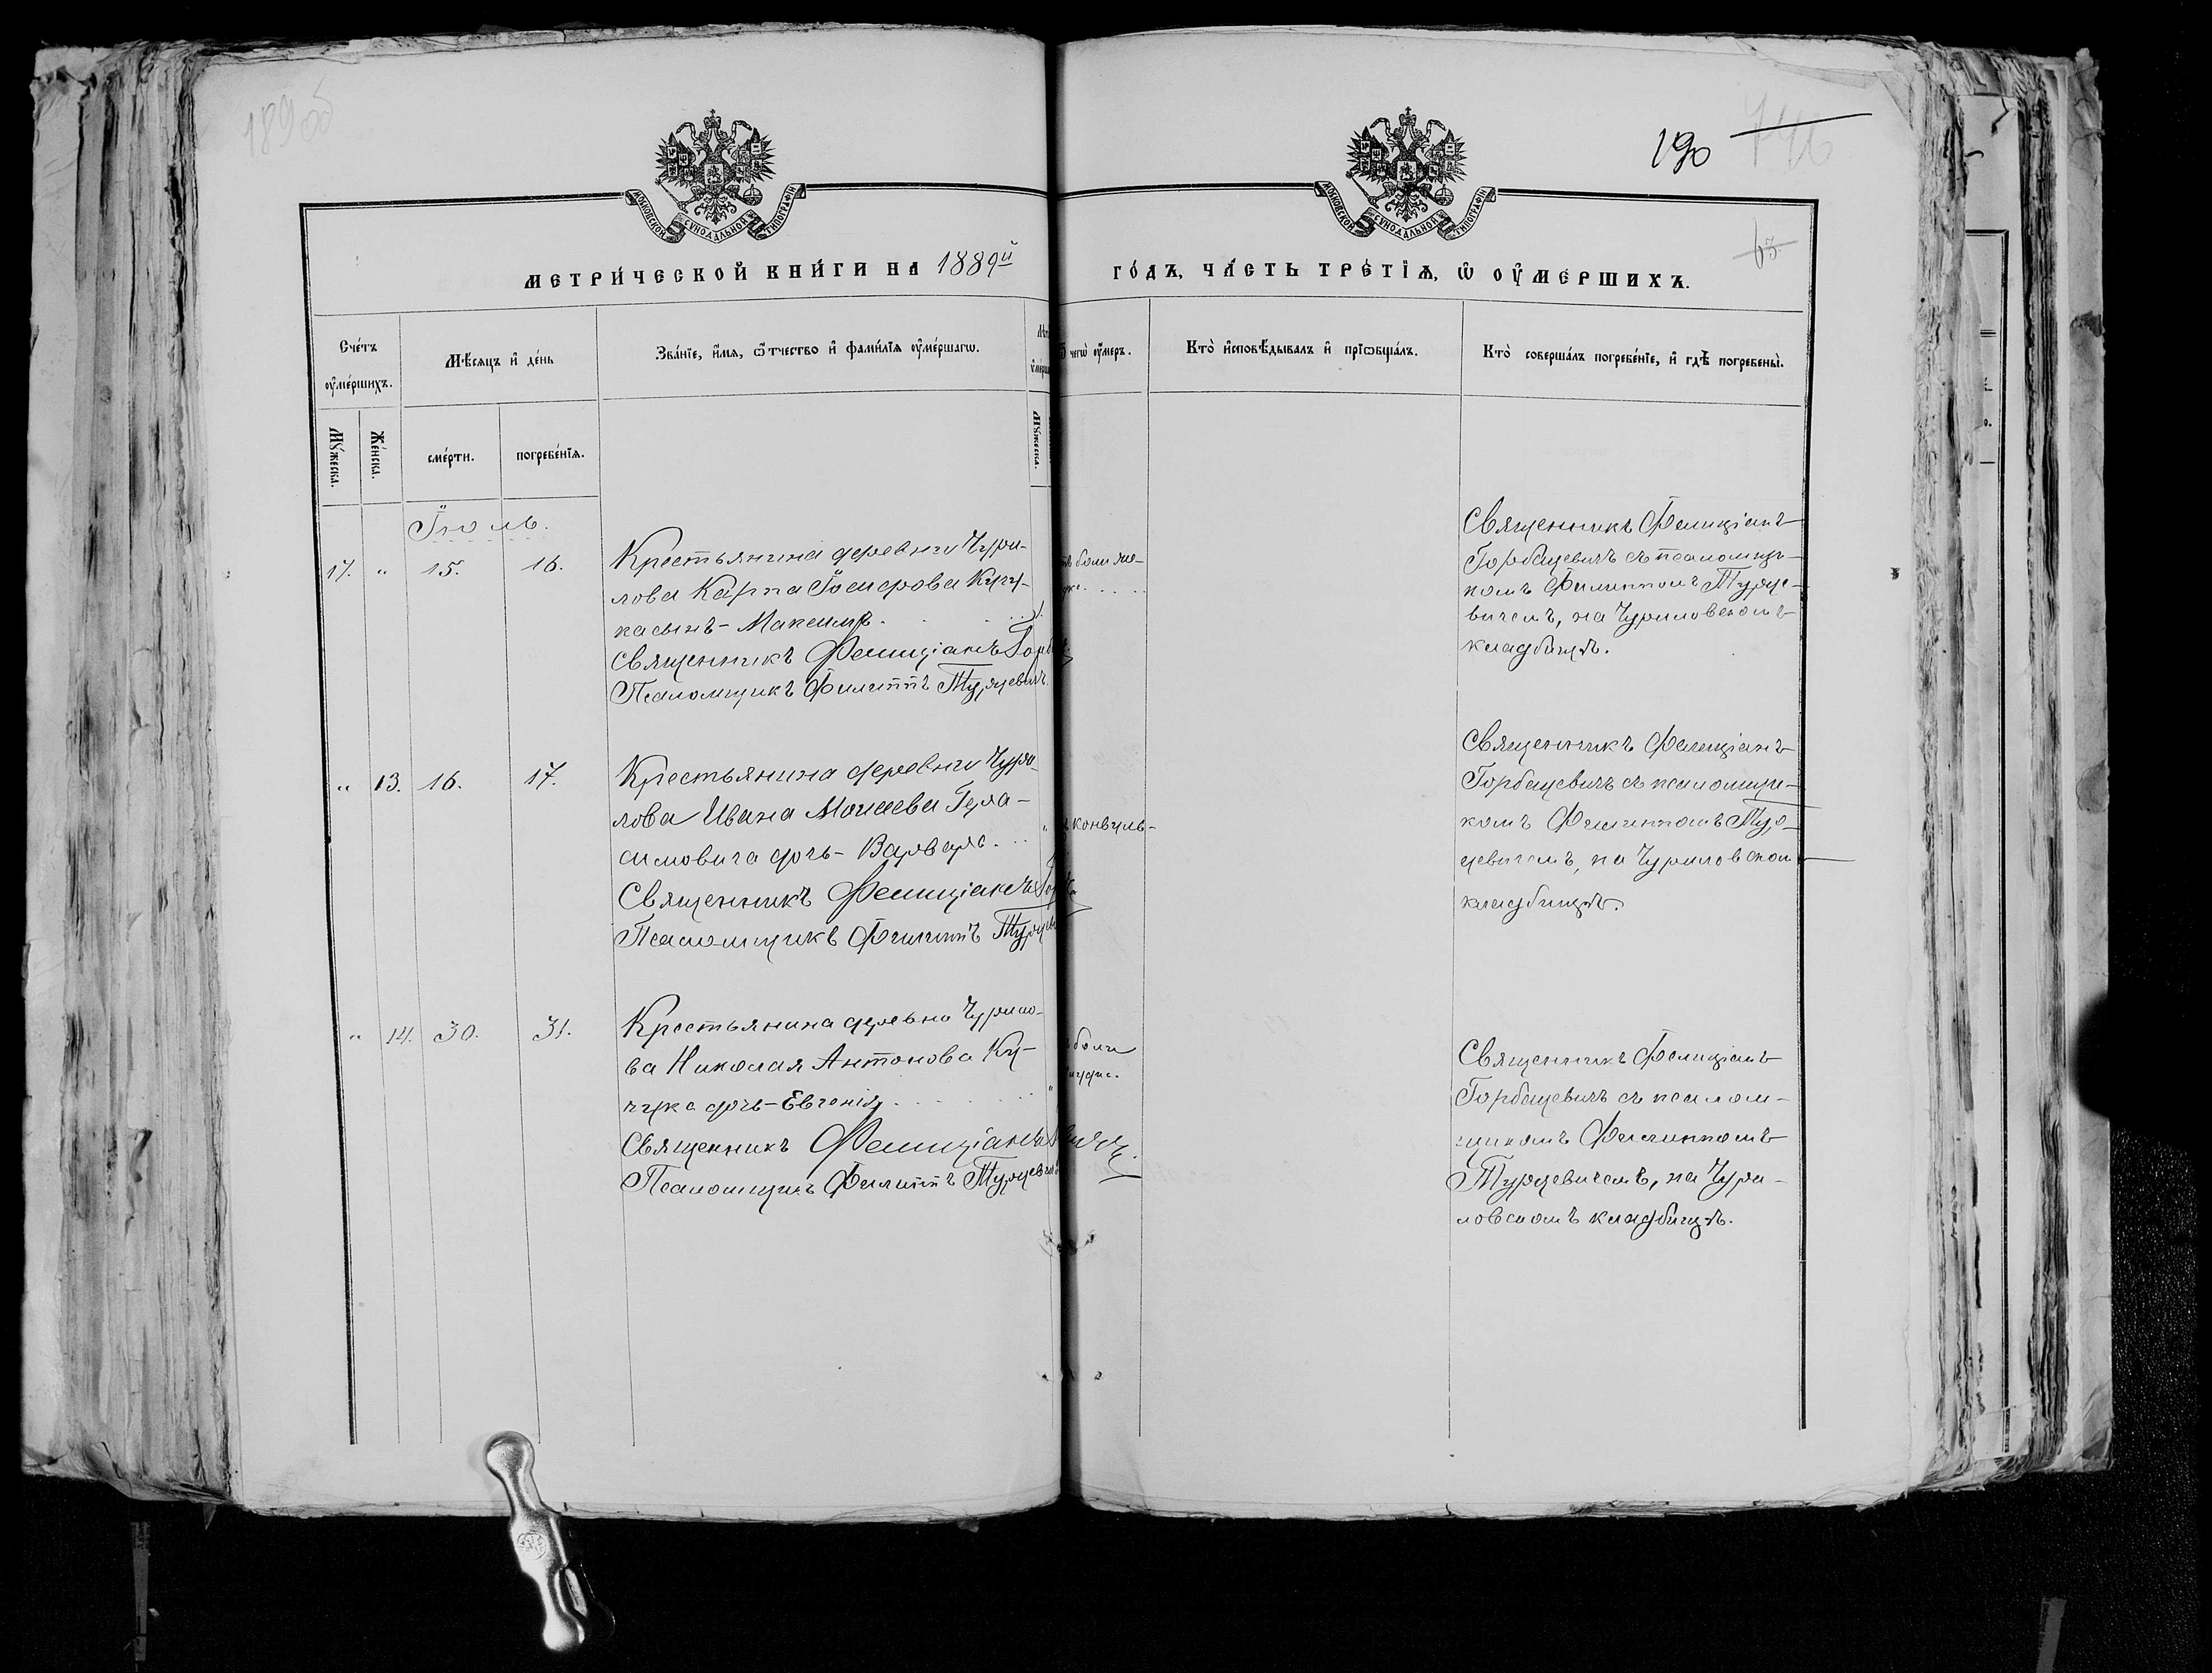 189об
190
МОСКОВСКОЙ СУНОДАЛЬНОЙ ТИПОГРАФІИ
МОСКОВСКОЙ СУНОДАЛЬНОЙ ТИПОГРАФІИ
63
МЕТРИ́ЧЕСКОЙ КНИ́ГИ НА 1889й
ГО́ДЪ, ЧА́СТЬ ТРЕ́ТІѦ, Ѡ ОУ҆МЕРШИХЪ.
Сче́тъ оу҆ме́ршихъ.
Мѣ́сяцъ и҆ де́нь
Зва́нїе, и҆́мя, ѻ҆́тчество и҆ фами́лїя оу҆ме́ршагѡ.
чегѡ̀ оу҆́меръ.
Кто̀ и҆сповѣ́дывалъ и҆ прїѡбща́лъ.
Кто̀ соверша́лъ погребе́нїе, и҆ гдѣ̀ погребены̀.
Мꙋ́жеска.
Же́нска.
сме́рти.
погребе́нїя.
Мꙋ́жеска.
Іюль.
17. " 15. 16.
Крестьянина деревни Чури-
лова Карпа
ка сынъ - Максимъ.
Священникъ Фелиціанъ
Псаломщикъ Филиппъ Турцевичъ.
боли же-
Священникъ Фелиціанъ
Горбацевичъ съ псаломщи-
комъ Филиппомъ Турце-
вичемъ, на Чуриловскомъ
кладбищѣ.
" 13. 16. 17.
Крестьянина деревни Чури-
лова Ивана Моисеева Гера-
симовича дочь - Варвара. ...
Священникъ Фелиціанъ
Псаломщикъ Филиппъ
конвуль-
Священникъ Фелиціанъ
Горбацевичъ съ псаломщи-
комъ Филиппомъ Тур-
цевичемъ, на Чуриловском
кладбищѣ.
" 14. 30. 31.
Крестьянина деревни Чурило-
ва Николая Антонова Ку-
чука дочь - Евгенія
Священникъ Фелиціанъ
Псаломщикъ Филиппъ Турцевичъ
боли
Священникъ Фелиціанъ
Горбацевичъ съ псалом-
щикомъ Филиппомъ
Турцевичемъ, на Чури-
ловскомъ кладбищѣ.